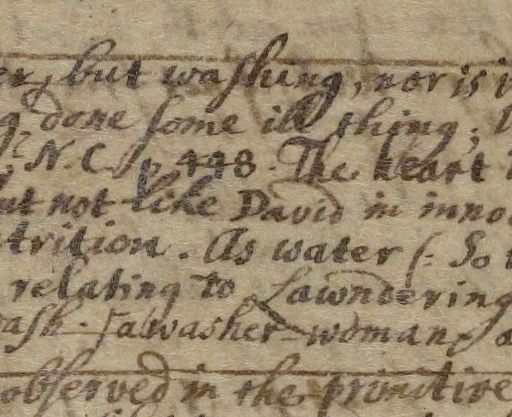 er, but washing, nor is i
g done some ill thing;
N. C. p 448. The heart i
ut not like David in inno
trition. As water (: So
relating to Lawndering
ash. fawasher-woman,
observed in the primitive